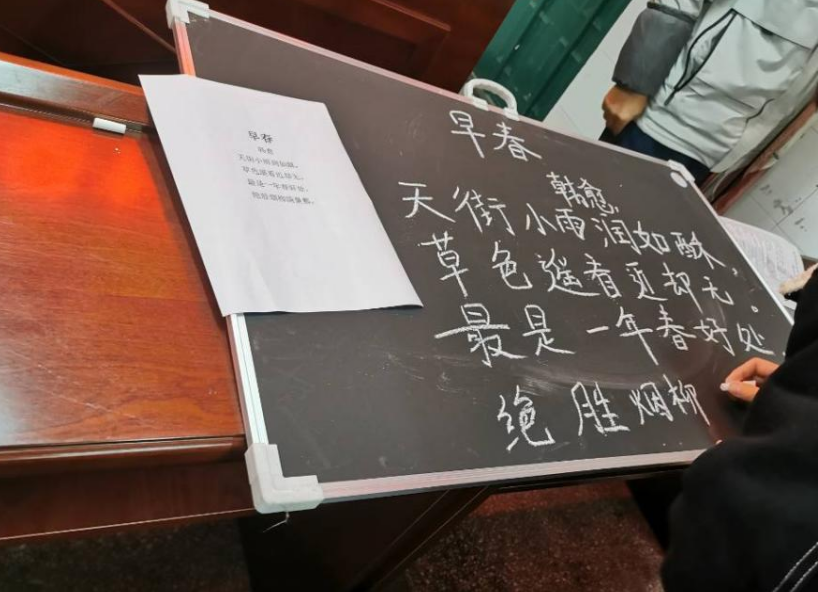 早春
韩愈
天街小雨润如酥，
草色遥看近却无。
最是一年春好处，
绝胜烟柳满皇都。
早春
韩愈
天街小雨润如酥，
草色遥看近却无。
最是一年春好处，
绝胜烟柳